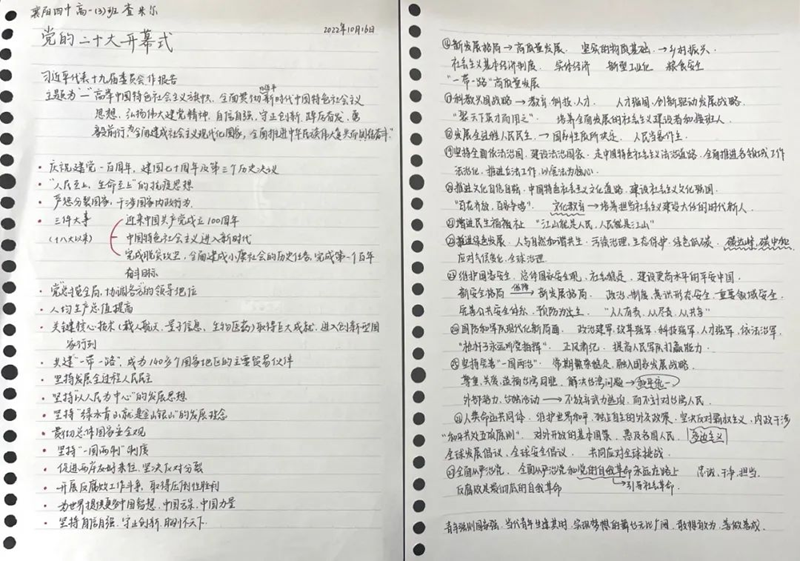 襄阳四中高一(3)班 查米尔
2022年10月16日
党的二十大开幕式
习近平代表十九届委员会作报告
主题为"——高举中国特色社会主义旗帜,全面贯彻新时代中国特色社会主义
思想,弘扬伟大建党精神,自信自强、守正创新,踔厉奋发、勇
毅前行,为全面建成社会主义现代化国家、全面推进中华民族伟大复兴而团结奋斗"
• 庆祝建党一百周年、建国七十周年及第三个历史决议
• "人民至上,生命至上"的抗疫思想
• 严惩分裂国家、干涉国家内政行为
• 三件大事 迎来中国共产党成立100周年
(十八大以来) 中国特色社会主义进入新时代
完成脱贫攻坚、全面建成小康社会的历史任务,完成第一个百年
奋斗目标
• 党总揽全局、协调各方的领导地位
• 人均生产总值提高
• 关键核心技术(载人航天、量子信息、生物医药)取得巨大成就,进入创新型国
家行列
• 共建"一带一路",成为140多个国家地区的主要贸易伙伴
• 坚持发展全过程人民民主
• 坚持"以人民为中心"的发展思想
• 坚持"绿水青山就是金山银山"的发展理念
• 贯彻总体国家安全观
• 坚持"一国两制"制度
• 促进两岸友好来往,坚决反对分裂
• 开展反腐败工作斗争,取得压倒性胜利
• 为世界提供更多中国智慧、中国方案、中国力量
• 坚持自信自强、守正创新、胸怀天下
⑥新发展格局→高质量发展 坚实的物质基础→乡村振兴
社会主义基本经济制度 实体经济 新型工业化 粮食安全
"一带一路"高质量发展
⑦科教兴国战略→教育、科技、人才 人才强国、创新驱动发展战略
"聚天下英才而用之" 培养全面发展的社会主义建设者和接班人
⑧发展全过程人民民主→国家性质所决定 人民当家作主
⑨坚持全面依法治国,建设法治国家,走中国特色社会主义法治道路,全面推进各方面工作
法治化,推进立法工作,以宪法为核心
⑩推进文化自信自强,中国特色社会主义文化道路,建设社会主义文化强国
"百花齐放、百家争鸣" 文化教育→培养担当社会主义建设大任的时代新人
⑪增进民生福祉 "江山就是人民,人民就是江山"
⑫推进绿色发展 人与自然和谐共生、污染治理、生态保护、绿色低碳、碳达峰、碳中和
应对气候变化、全球治理
⑬维护国家安全,总体国家安全观,社会稳定,建设更高水平的平安中国
新安全格局 保障→ 新发展格局 政治、制度、意识形态安全、重要领域安全
完善公共安全体系 预防为主 "人人有责、人人尽责、人人共享"
⑭国防和军队现代化新局面 政治建军、改革强军、科技强军、人才强军、依法治军
"枪杆子永远听党指挥" 正风肃纪 提高人民军队打赢能力
⑮坚持完善"一国两制" 长期繁荣稳定,融入国家发展战略
尊重、关爱、造福台湾同胞 解决台湾问题→和平统一
外部势力、台独活动→不放弃武力统战,而不针对台湾人民
⑯人类命运共同体 维护世界和平,独立自主的外交政策,坚决反对霸权主义、内政干涉
"和平共处五项原则" 对外开放的基本国策 惠及各国人民
全球发展倡议、全球安全倡议 共同应对全球挑战
⑰全面从严治党 全面从严治党和党的自我革命永远在路上 忠诚、干净、担当
反腐败是最彻底的自我革命 引领社会革命
青年强则国家强,当代青年生逢其时,实现梦想的舞台无比广阔,敢想敢为、善作善成。